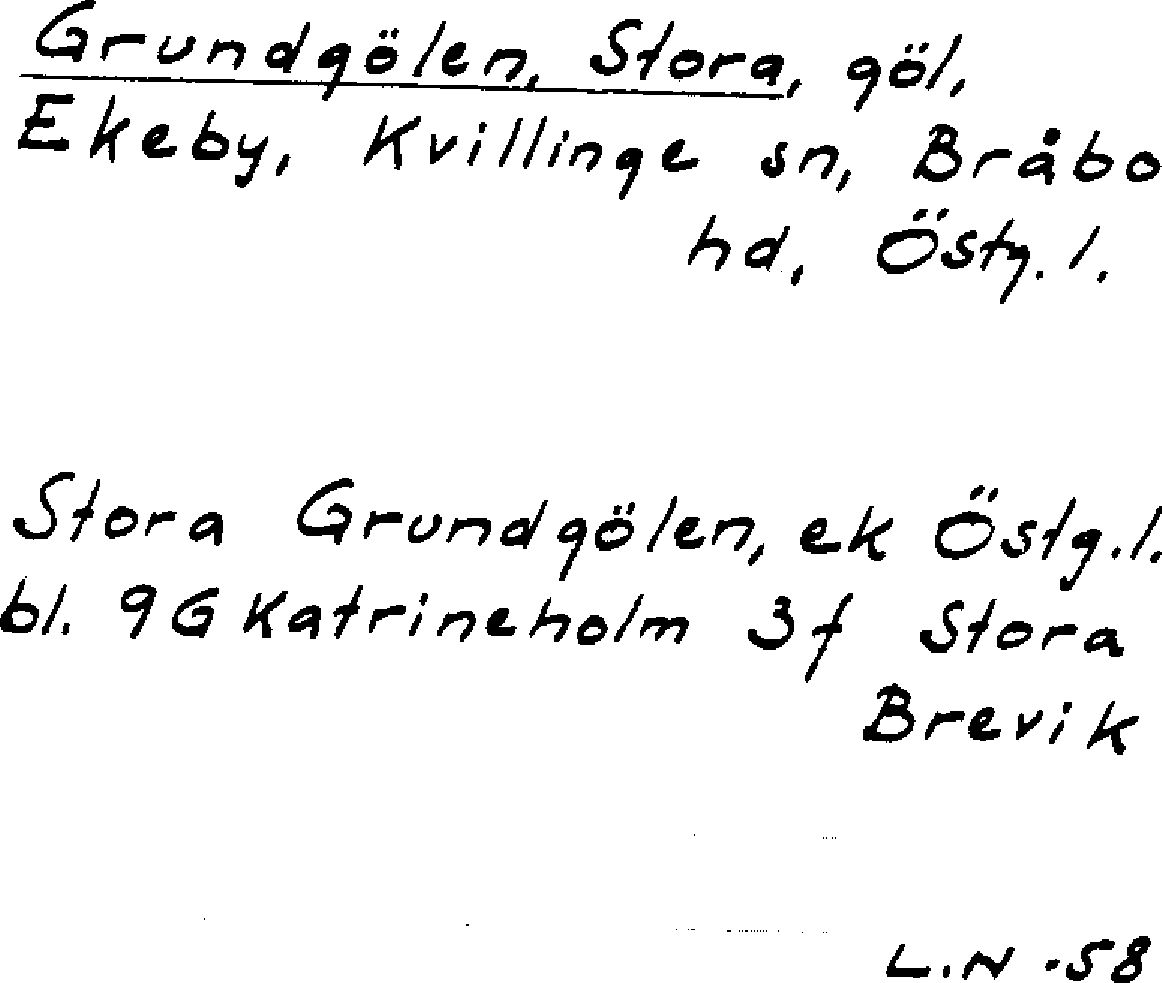 Grundgölen, Stora, göl,
Ekeby, Kvillinge sn, Bråbo
hd, Östg. l.
Stora Grundgölen, ek Östg.l.
bl. 9G Katrineholm 3f Stora
Brevik
L.N -58